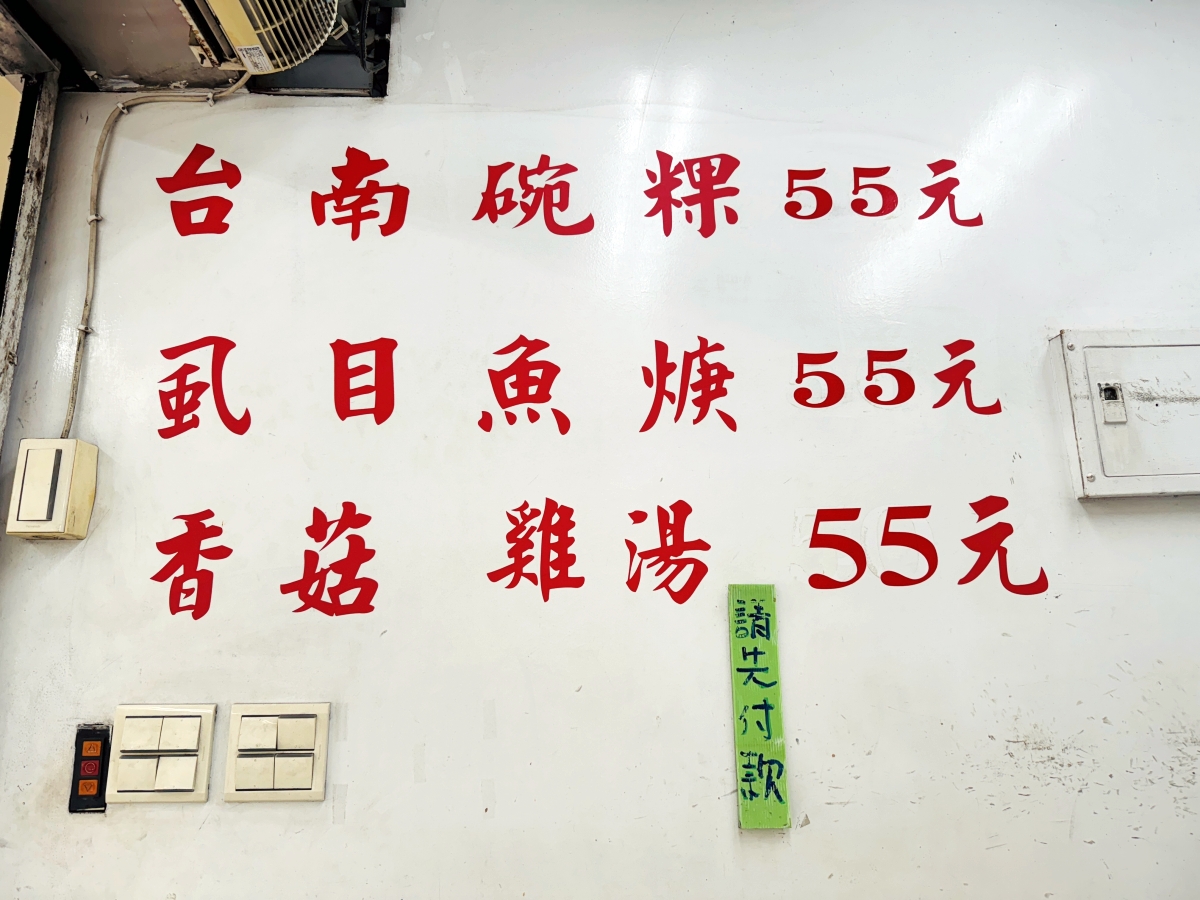 台南碗粿55元
虱目魚焿55元
香菇雞湯55元
請先付款